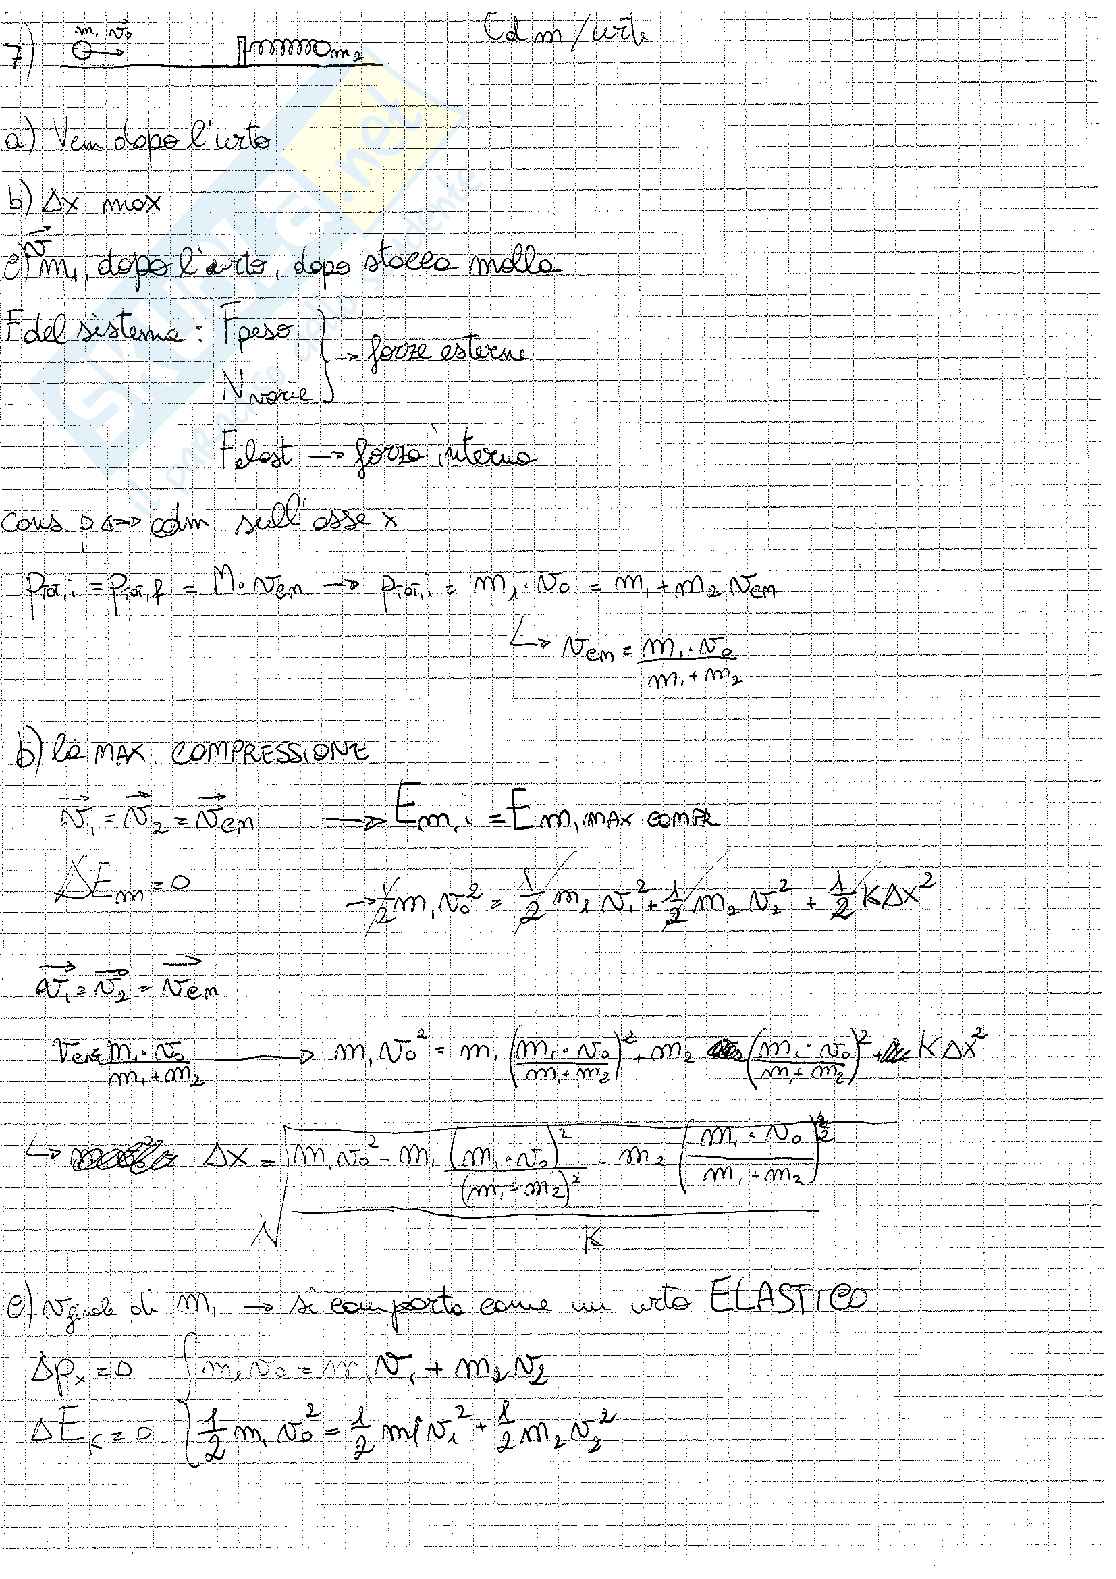 Cdm/urti
7) m₁ v₀ m₂
a) Vcm dopo l'urto
b) Δx max
c) v⃗ m₁, dopo l'urto, dopo stacco molla
F del sistema: Fpeso
Nvarie } → forze esterne
Felast → forza interna
cons p ↔ cdm sull'asse x
ptot,i = ptot,f = M·vcm → ptot,i = m₁·v₀ = m₁+m₂ vcm
↳ vcm = m₁·v₀ / m₁+m₂
b) la MAX COMPRESSIONE
v⃗₁ = v⃗₂ = v⃗cm → Em,i = Em,MAX COMPR
ΔEm = 0 → 1/2 m₁v₀² = 1/2 m₁ v₁² + 1/2 m₂ v₂² + 1/2 kΔx²
v⃗₁ = v⃗₂ = v⃗cm
Vcm = m₁·v₀ / m₁+m₂ → m₁v₀² = m₁ (m₁·v₀ / m₁+m₂)² + m₂ (m₁·v₀ / m₁+m₂)² + kΔx²
↳ Δx = √ m₁v₀² - m₁ (m₁·v₀)² / (m₁+m₂)² - m₂ (m₁·v₀ / m₁+m₂)² / K
c) v finale di m₁ → si comporta come un urto ELASTICO
Δpx = 0 { m₁v₀ = m₁v₁ + m₂v₂
ΔEk = 0 { 1/2 m₁ v₀² = 1/2 m₁ v₁² + 1/2 m₂ v₂²